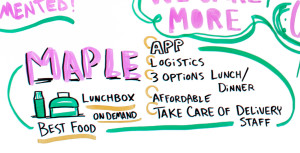 MENTED!
MORE
MAPLE
LUNCHBOX
ON DEMAND
BEST FOOD
APP
LOGISTICS
3 OPTIONS LUNCH/
DINNER
AFFORDABLE
TAKE CARE OF DELIVERY
STAFF